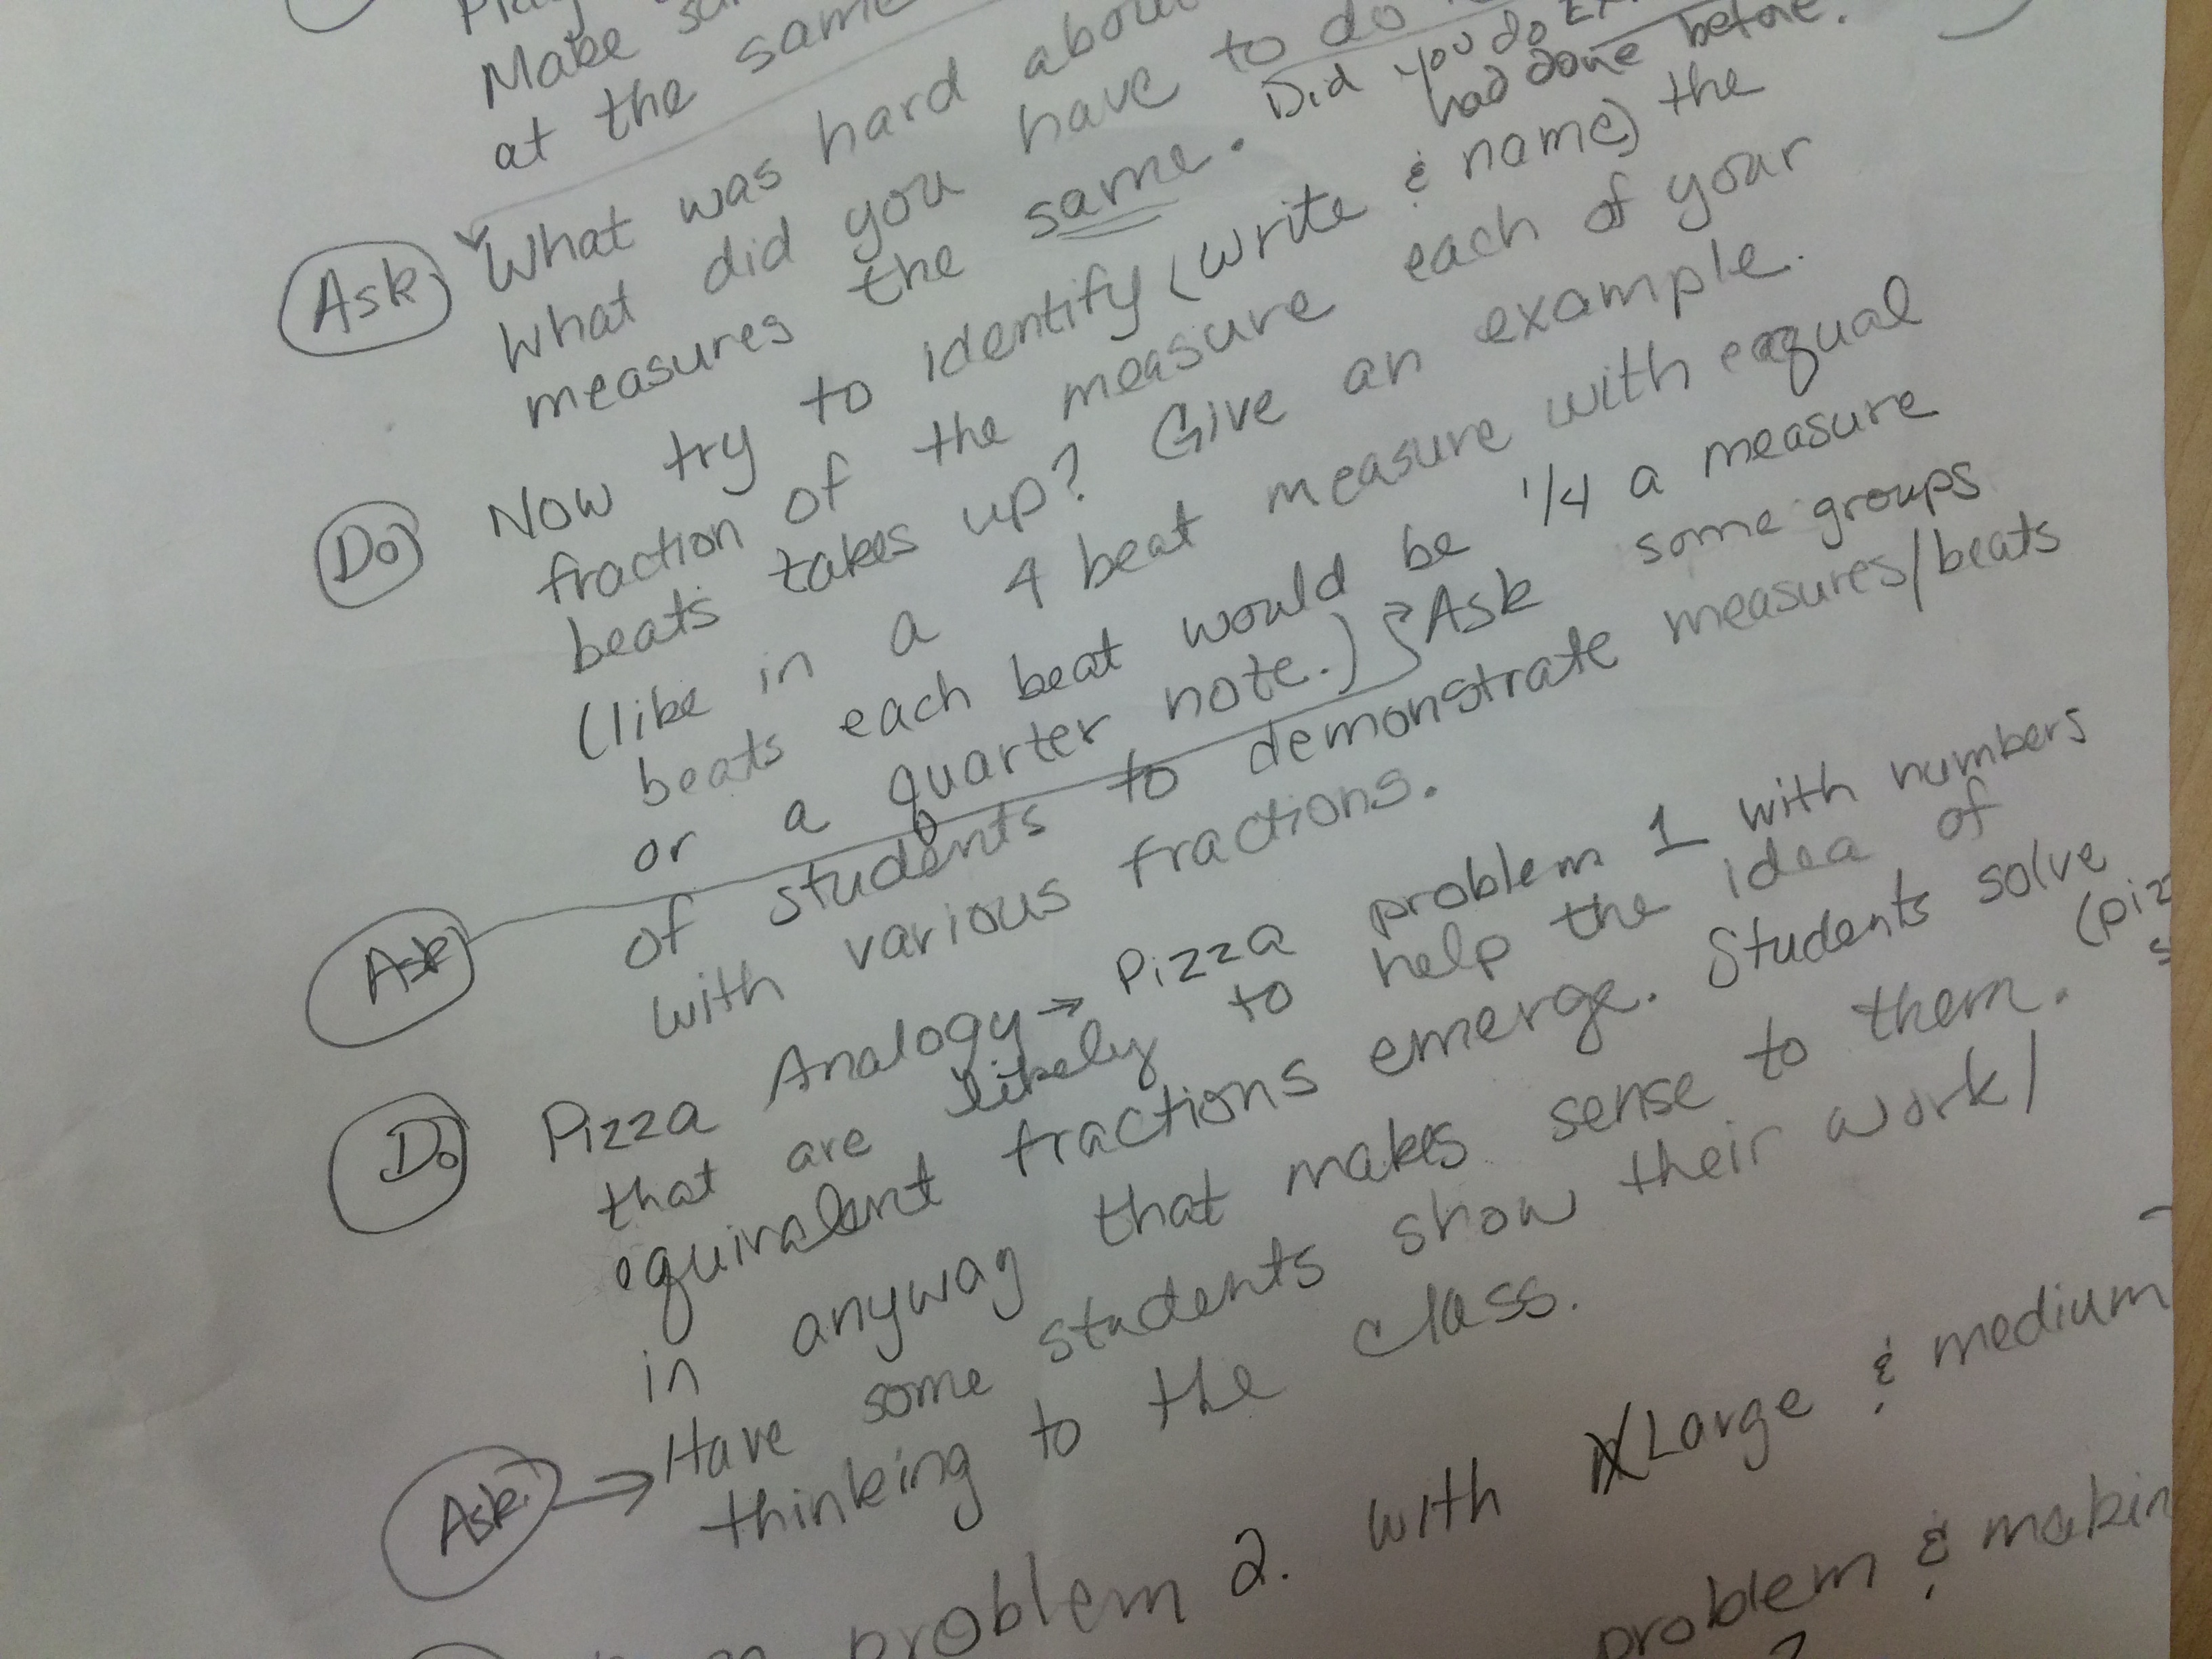 Make
at the same
Ask What was hard about
What did you have to do
measures the same. Did you do
had done before.
Do Now try to identify (write & name) the
fraction of the measure each of your
beats takes up? Give an example.
(like in a 4 beat measure with eqqual
beats each beat would be 1/4 a measure
or a quarter note.) Ask some groups
Ask of students to demonstrate measures/beats
with various fractions.
Do Pizza Analogy → Pizza problem 1 with numbers
that are likely to help the idea of
equivalent fractions emerge. Students solve
in anyway that makes sense to them. (piz
Ask → Have some students show their work/
thinking to the class.
problem 2. with XLarge & medium
problem & makin